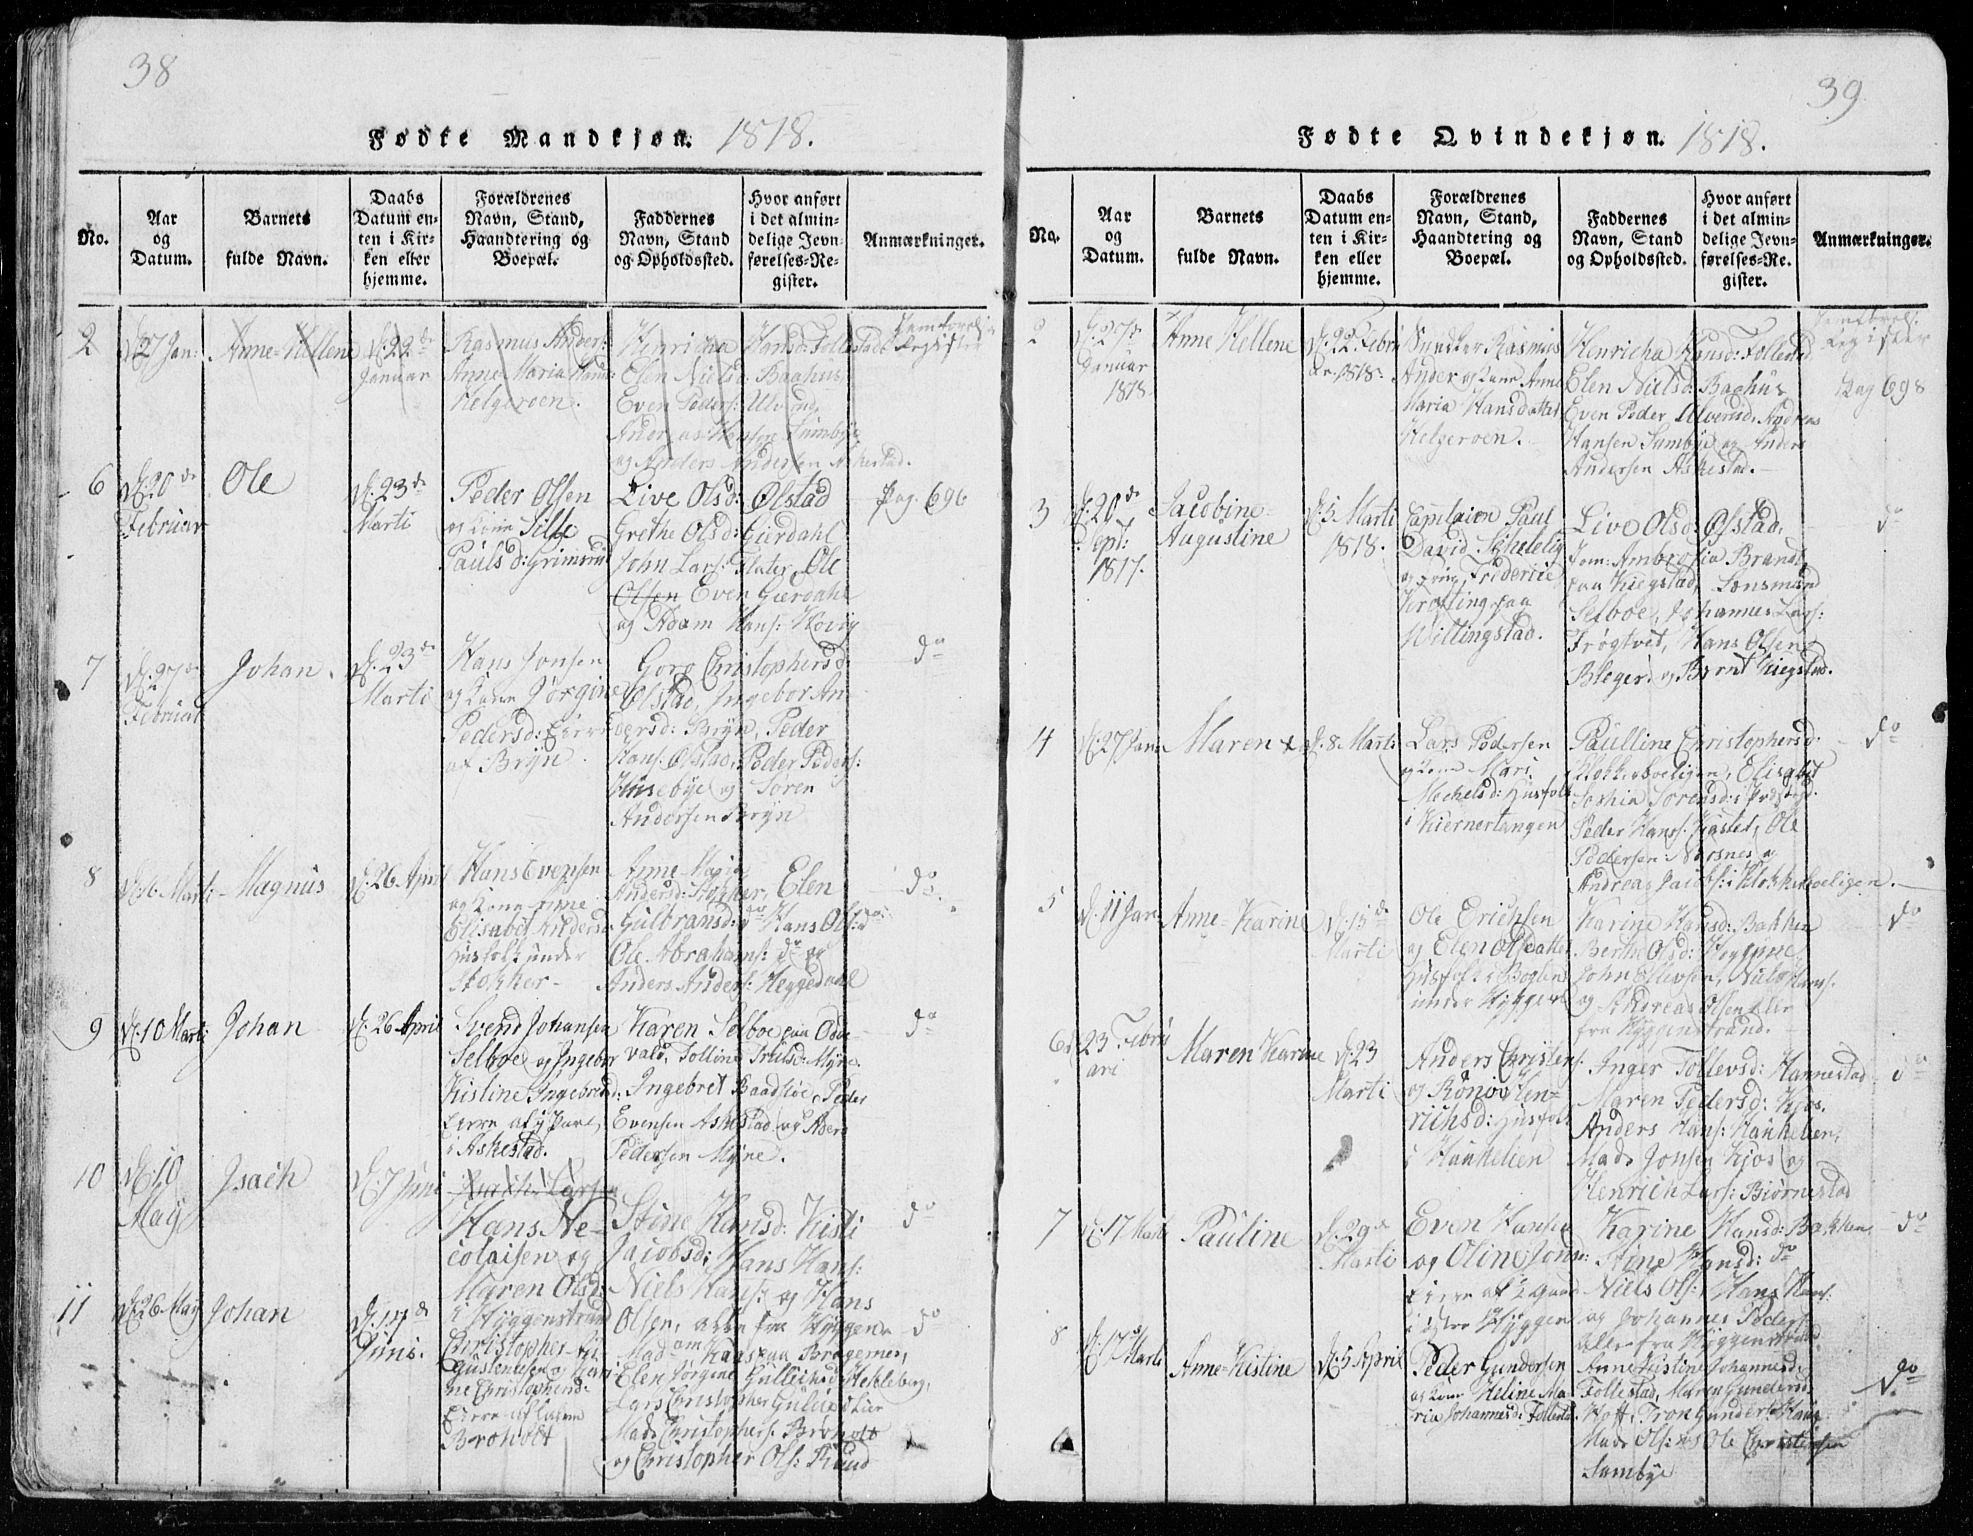 38
Fødte Mandkjøn. 1818.
No.
Aar
og
Datum.
Barnets
fulde Navn.
Daabs
Datum en-
ten i Kir-
ken eller
hjemme.
Forældrenes
Navn, Stand,
Haandtering og
Boepæl.
Faddernes
Navn, Stand
og Opholdssted.
Hvor anført
i det almin-
delige Jevn-
førelses-Re-
gister.
Anmærkninger.
2
d. 27 Jan:
Anne Hellene
d. 22de
Januar
Rasmus Anders:
Anne Maria Hansd:
Helgeroen.
Henricha Hansd: Follestad
Elen Nielsd: Baghus
Even Peders: Ulverud,
Andreas Hansen Sumbye
og Anders Andersen Askestad.
6
d. 20de
Februar
Ole
d. 23de
Marti
Peder Olsen
og Kone Sille
Paulsd: Grimsrud
Live Olsd: Ølstad
Grethe Olsd: Gierdahl
John Lars: Flater, Ole
Olsen Even Gierdahl
og Adam Hans: Høvig
Pag. 696
7
d. 27de
Februar
Johan.
d. 23de
Marti
Hans Jonsen
og Kone Jørgine
Pedersd: Eiere
af Bryn.
Goro Christophersd:
Ølstad, Ingebor An-
dersd: Bryn, Peder
Hans: Ølstad, Peder Peders:
Husebye og Søren
Andersen Bryn
do
8
d. 6 Marti
Magnus
d. 26 April
Hans Evensen
og Kone Anne
Elisabet Andersd:
Husfolk under
Stokker
Anne Maria
Andersd: Stokker, Elen
Gulbransd: do Hans Ols: do
Ole Abrahams: do og
Anders Anders: Heggedahl
do
9
d. 10 Marti
Johan
d. 26 April
Svend Johansen
Selboe og Ingebor
Kistine Ingebretsd:
Eiere af ½ Part,
i Askestad.
Karen Selboe paa Oden-
vald, Tolline Trulsd: Myre.
Ingebret Baadstøe, Peder
Evensen Askestad og Abers
Pedersen Myre.
do
10
d. 10
May
Isach
d. 7 Juni
Isach Larsen
Hans Ne-
colaisen og
Maren Olsd:
i Hyggenstrand
Stine Hansd: Kisti
Jacobsd: Hans Hans:
Niels Hans: og Hans
Olsen, alle fra Hyggen
do
11
d. 26 May
Johan
d. 14de
Juni.
Christopher
Gustensen og Kari-
ne Christophersd:
Eiere af
Broholt
Madam Haas paa Bragernes,
Elen Jørgine Gullichsd: Hekleberg,
Lars Christopher Gulichs: Lier
Mads Christophers: Broholt
og Christopher Ols: Ruud
do
39
Fødte Qvindekjøn. 1818.
No.
Aar
og
Datum.
Barnets
fulde Navn.
Daabs
Datum en-
ten i Kir-
ken eller
hjemme.
Forældrenes
Navn, Stand,
Haandtering og
Boepæl.
Faddernes
Navn, Stand
og Opholdssted.
Hvor anført
i det almin-
delige Jevn-
førelses-Re-
gister.
Anmærkninger.
2
d. 27de
Januar
1818
Anne Hellene
d. 22 Febru
ar 1818.
Rasmus
Anders: og Kone Anne
Maria Hansdatter
Helgeroen.
Henricha Hansd: Follestad
Elen Nielsd: Baghus
Even Peder Ulverud, Andreas
Hansen Sumbye og Anders
Andersen Askestad.
Register
Pag 698
3
d. 20de
Sept:
1817.
Jacobine
Augustine
d. 5 Marti
1818.
Capitaien Paul
David Schelelig
og Frue Frideric
Vrøtting paa
Willingstad.
Live Olsd: Ølstad,
Jom: Ambrosia Brandt
paa Kiegstad, Lensmand
Selboe, Johannes Lars:
Frøgtved, Hans Olsen
Bleger og Bernt Kiegstad.
do
4
d. 27 Janu
Maren
d. 8 Marti
Lars Pedersen
og Kone Mari
Michelsd: Husfolk
i Kiernertangen
Paulline Christophersd:
Klokkerboeligen, Elisabet
Sophia Sørensd: i Præstegd:
Peder Hans: Kiøsted, Ole
Pedersen Næsnes og
Andreas Jacobs: i Klokkerboeligen.
do
5
d. 11 Jan
Anne Karine
d. 15de
Marti
Ole Erichsen
og Elen Olsdatter
Husfolk i Bogten
under Hyggen
Karine Hansd: Bakken
Berthe Olsd: Hyggene,
John Ellevsen, Niels Hans:
og Andreas Olsen alle
fra Hyggenstrand.
do
6
d. 23 Febru
ari
Maren Karine
d. 23
Marti
Anders Christens:
og Rønov Hen-
richsd: Husfolk
i Hankelien
Inger Tollevsd: Hannestad
Maren Pedersd: Kjos.
Anders Hans: Hankelien,
Mads Jonsen Kjos og
Henrich Lars: Biørnestad
do
7
d. 17 Marti
Pauline
d. 29de
Marti
Even Hansen
og Oline Jonsd:
Eiere af ½ Gaard
i østre Hyggen
Karine Hansd: Bakken
Stine Hansd: do
Niels Ols: Hans Hans:
og Johannes Peders:
alle fra Hyggenstrand
do
8
d. 17 Marti
Anne Kistine
d. 5 April
Peder Gundersen
og Kone Heline Ma-
ria Johannesd: Follestad
Anne Kistine Johannesd:
Follestad, Maren Gundersd:
Hoff, Tron Gunders: Haug
Mads Ols: og Ole Christensen
Sumbye
do